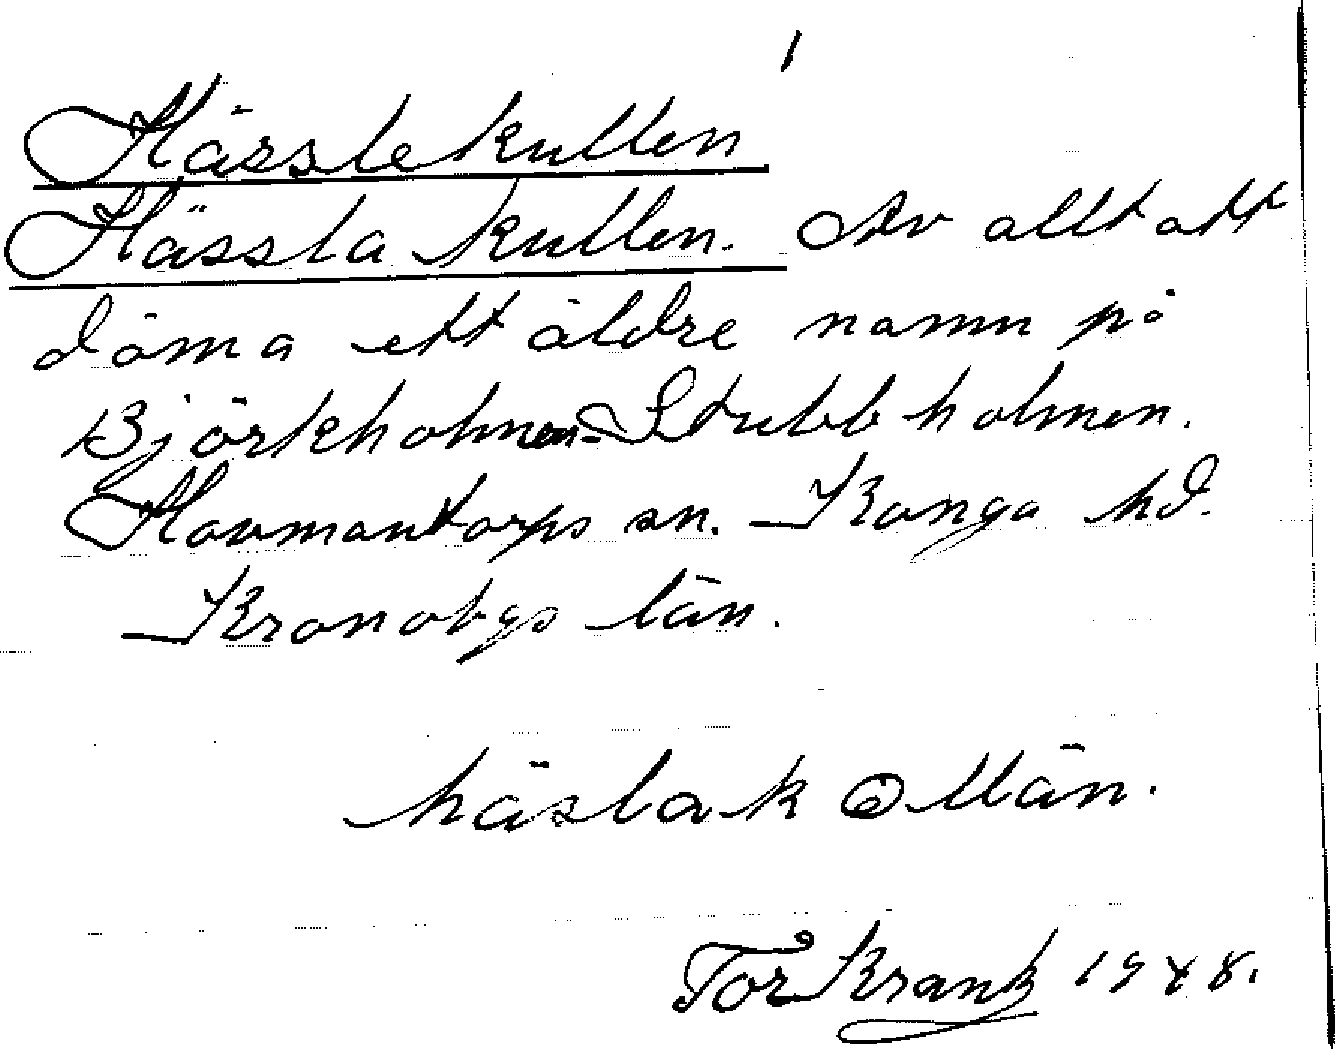 1
Hässlekullen
Hässlakullen. Av allt att
döma ett äldre namn på
Björkholmen-Stubbholmen.
Hovmantorps sn. Konga hd.
Kronobgs län.
häslak
Tor Krank 1948.